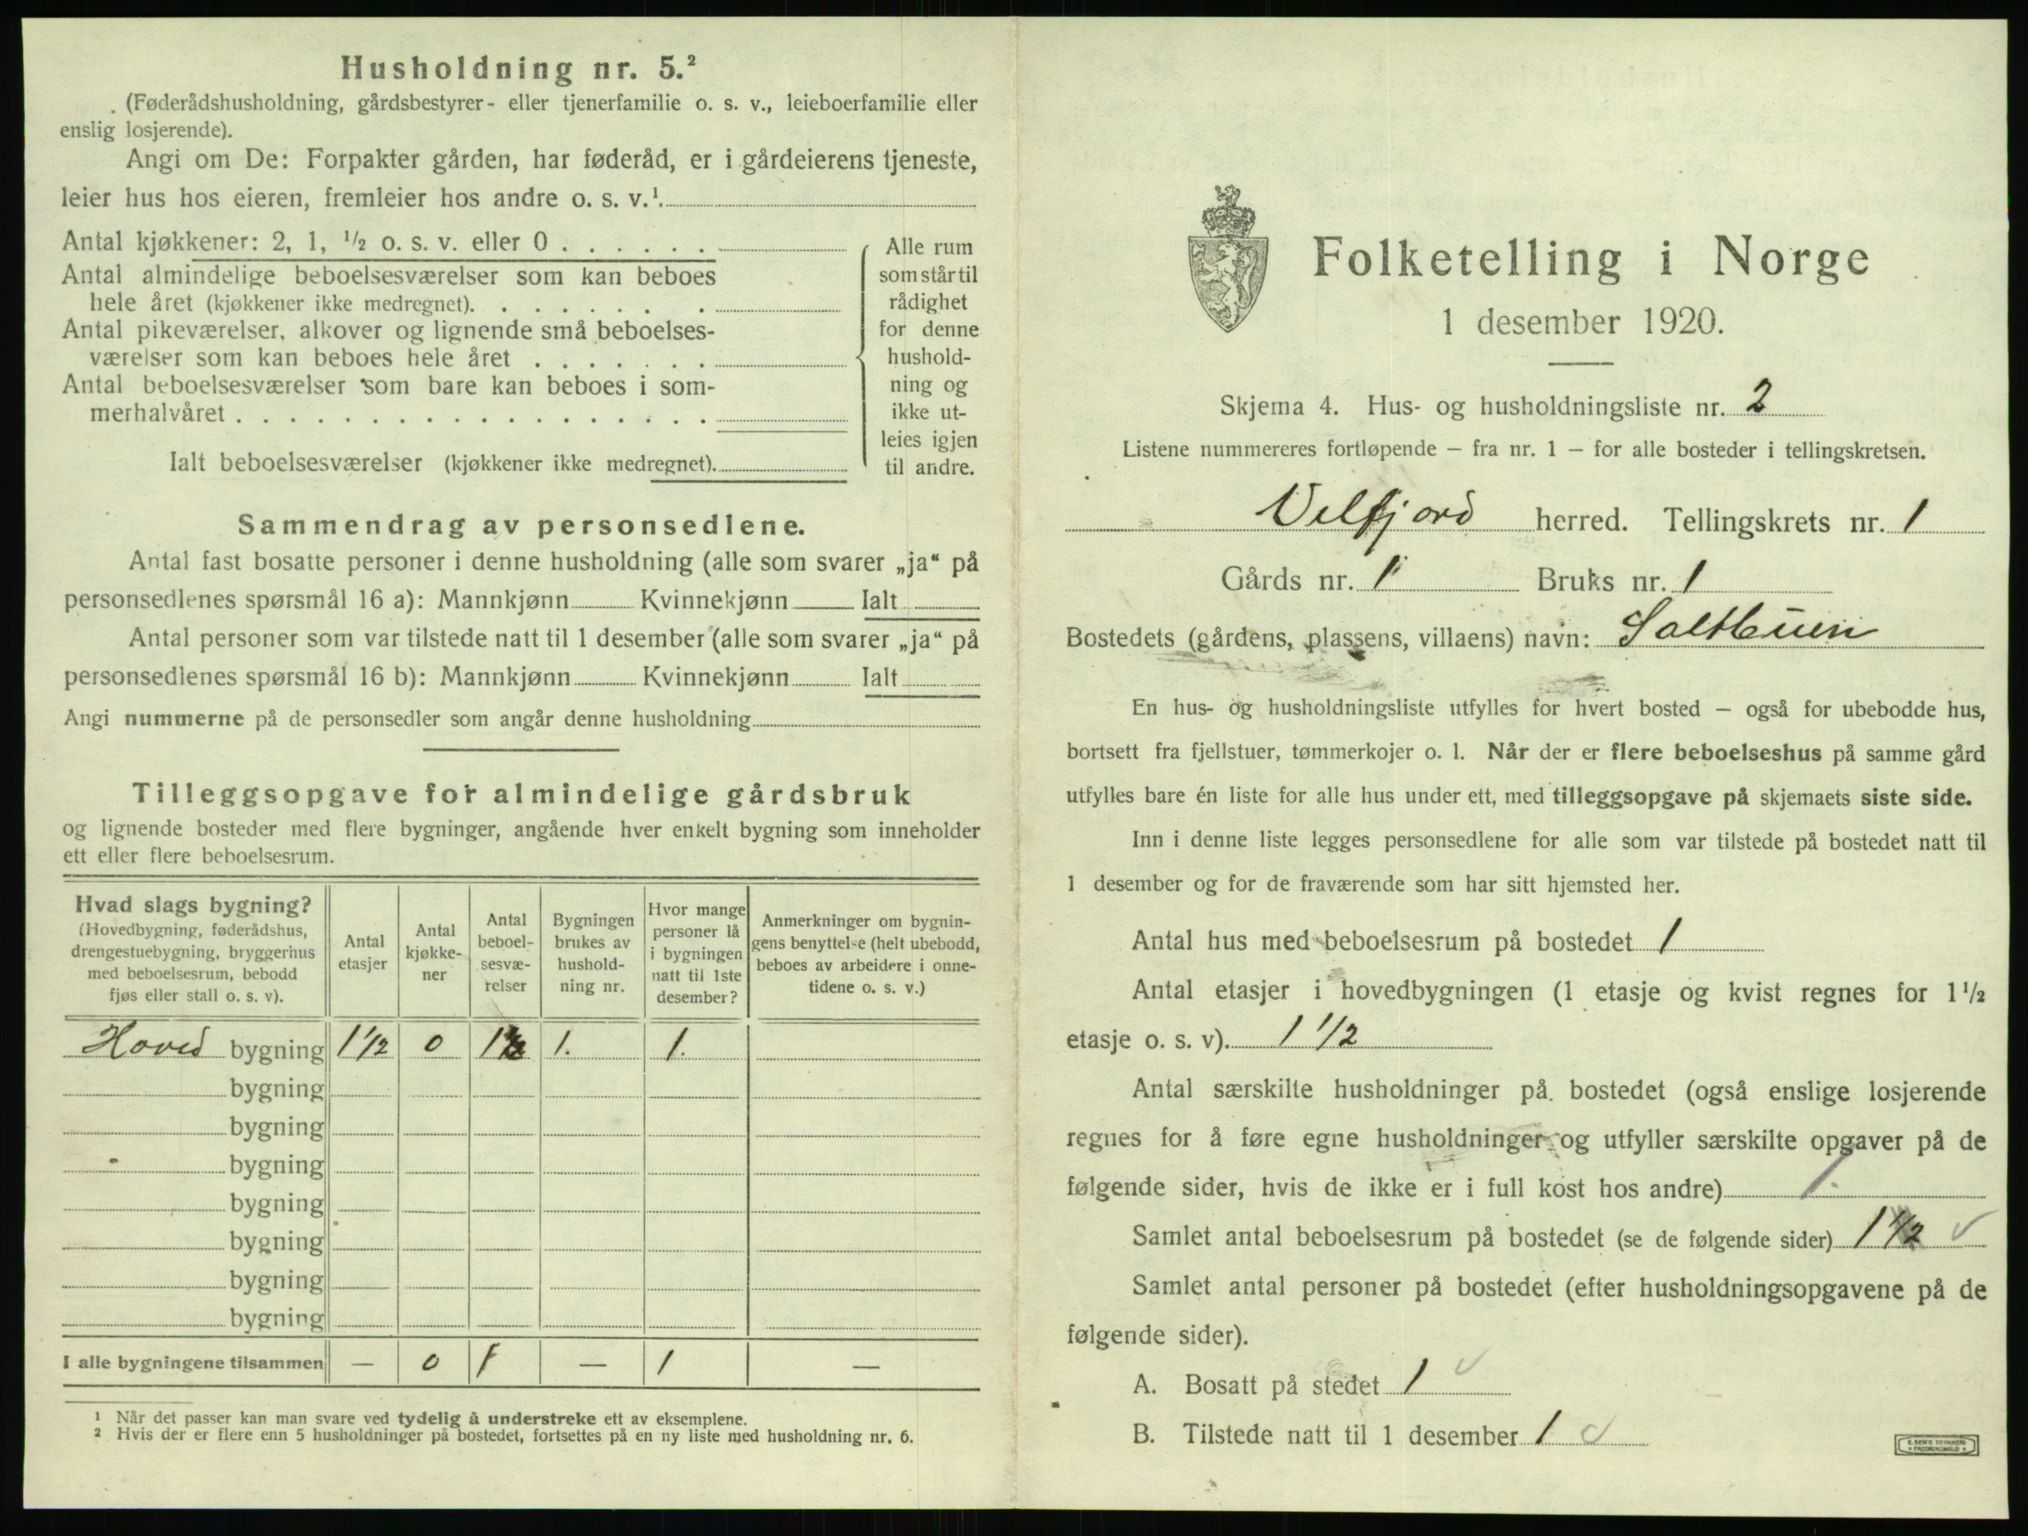 Husholdning nr. 5.²
(Føderådshusholdning, gårdsbestyrer- eller tjenerfamilie o. s. v., leieboerfamilie eller
enslig losjerende).
Angi om De: Forpakter gården, har føderåd, er i gårdeierens tjeneste,
leier hus hos eieren, fremleier hos andre o. s. v.¹.
Antal kjøkkener: 2, 1, ½ o. s. v. eller 0 . . . . . .
Antal almindelige beboelsesværelser som kan beboes
hele året (kjøkkener ikke medregnet). . . . . . . .
Antal pikeværelser, alkover og lignende små beboelses-
værelser som kan beboes hele året . . . . . . .
Antal beboelsesværelser som bare kan beboes i som-
merhalvåret . . . . . . . . . . . . . . . . . .
Ialt beboelsesværelser (kjøkkener ikke medregnet).
Alle rum
som står til
rådighet
for denne
hushold-
ning og
ikke ut-
leies igjen
til andre.
Sammendrag av personsedlene.
Antal fast bosatte personer i denne husholdning (alle som svarer „ja“ på
personsedlenes spørsmål 16 a): Mannkjønn Kvinnekjønn Ialt
Antal personer som var tilstede natt til 1 desember (alle som svarer „ja“ på
personsedlenes spørsmål 16 b): Mannkjønn Kvinnekjønn Ialt
Angi nummerne på de personsedler som angår denne husholdning
Tilleggsopgave for almindelige gårdsbruk
og lignende bosteder med flere bygninger, angående hver enkelt bygning som inneholder
ett eller flere beboelsesrum.
Hvad slags bygning?
(Hovedbygning, føderådshus,
drengestuebygning, bryggerhus
med beboelsesrum, bebodd
fjøs eller stall o. s. v).
Antal
etasjer
Antal
kjøkke-
ner
Antal
beboel-
sesvæ-
relser
Bygningen
brukes av
hushold-
ning nr.
Hvor mange
personer lå
i bygningen
natt til 1ste
desember?
Anmerkninger om bygnin-
gens benyttelse (helt ubebodd,
beboes av arbeidere i onne-
tidene o. s. v.)
Hoved bygning 1 1/2 0 1 1. 1.
bygning
bygning
bygning
bygning
bygning
bygning
bygning
I alle bygningene tilsammen — 0 1 — 1 —
¹ Når det passer kan man svare ved tydelig å understreke ett av eksemplene.
² Hvis der er flere enn 5 husholdninger på bostedet, fortsettes på en ny liste med husholdning nr. 6.
Folketelling i Norge
1 desember 1920.
Skjema 4. Hus- og husholdningsliste nr. 2
Listene nummereres fortløpende – fra nr. 1 – for alle bosteder i tellingskretsen.
Velfjord herred. Tellingskrets nr. 1
Gårds nr. 1 Bruks nr. 1
Bostedets (gårdens, plassens, villaens) navn:
En hus- og husholdningsliste utfylles for hvert bosted – også for ubebodde hus,
bortsett fra fjellstuer, tømmerkojer o. l. Når der er flere beboelseshus på samme gård
utfylles bare én liste for alle hus under ett, med tilleggsopgave på skjemaets siste side.
Inn i denne liste legges personsedlene for alle som var tilstede på bostedet natt til
1 desember og for de fraværende som har sitt hjemsted her.
Antal hus med beboelsesrum på bostedet 1
Antal etasjer i hovedbygningen (1 etasje og kvist regnes for 1½
etasje o. s. v). 1 1/2
Antal særskilte husholdninger på bostedet (også enslige losjerende
regnes for å føre egne husholdninger og utfyller særskilte opgaver på de
følgende sider, hvis de ikke er i full kost hos andre) 1.
Samlet antal beboelsesrum på bostedet (se de følgende sider) 1
Samlet antal personer på bostedet (efter husholdningsopgavene på de
følgende sider).
A. Bosatt på stedet 1
B. Tilstede natt til 1 desember 1